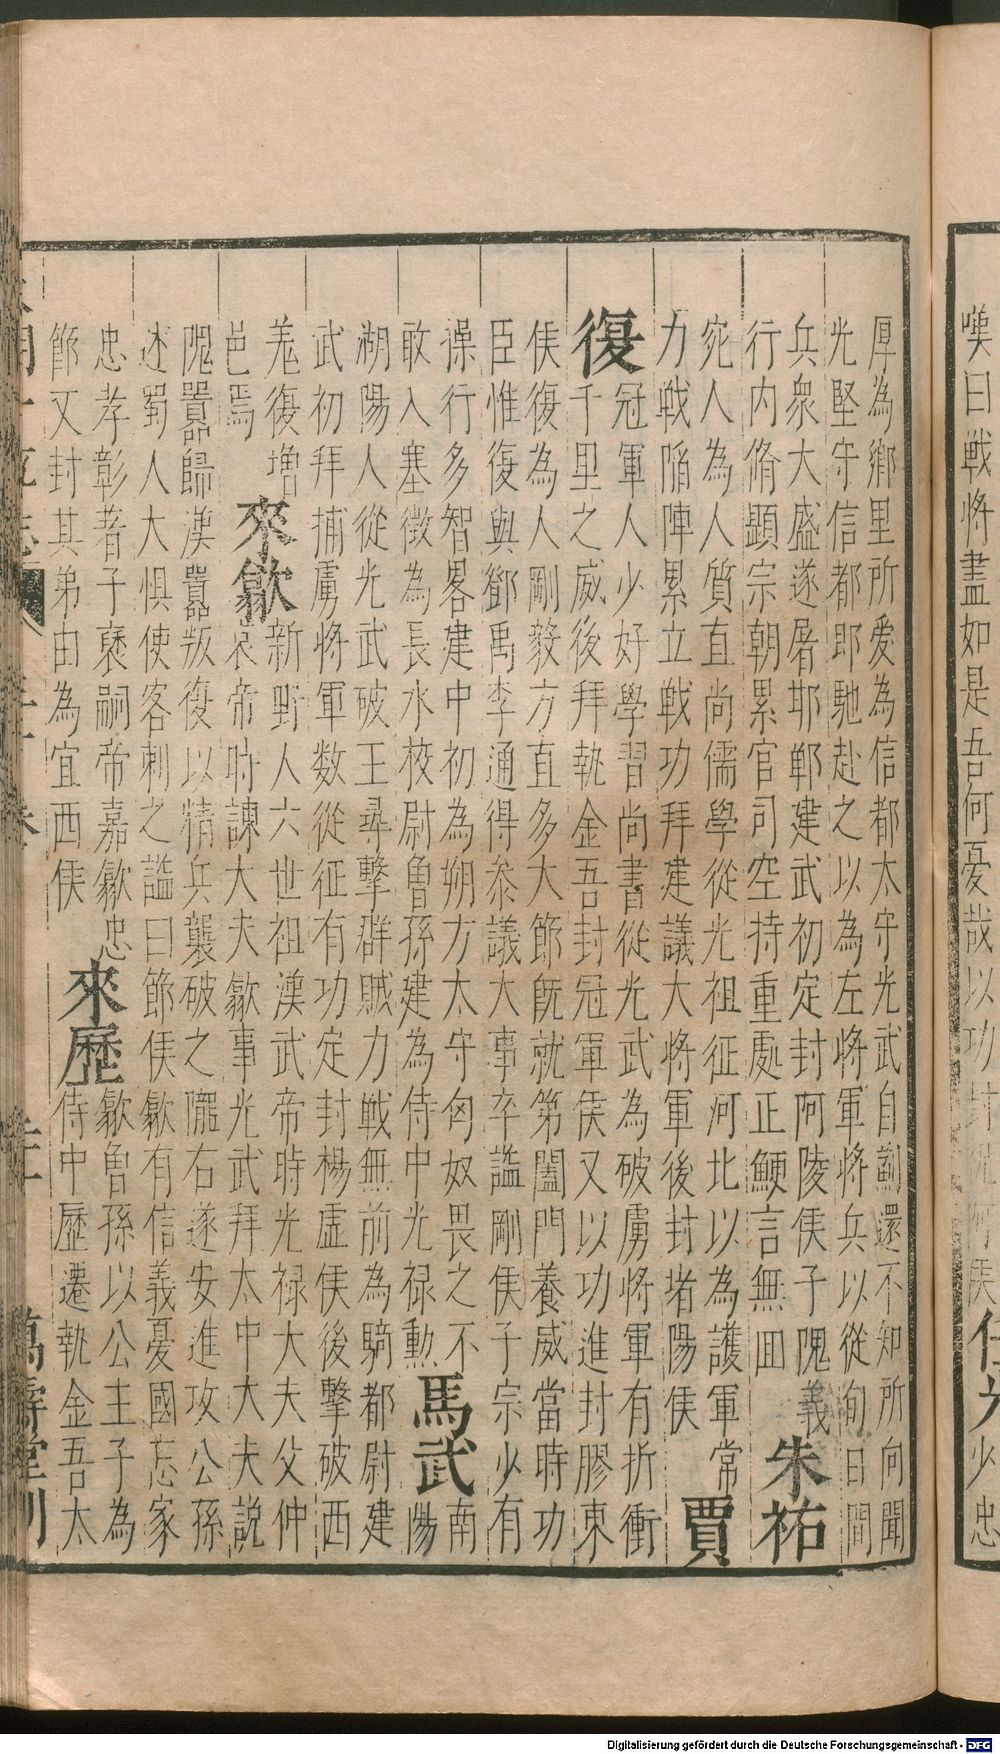 嘆曰戦將盡如是吾何憂哉以功封
任光少忠
厚為鄉里所爱為信都太守光武自薊還不知所向聞
光堅守信都即馳赴之以為左將軍將兵以從旬日間
兵衆大盛遂屠邯鄲建武初定封阿陵侯子隗義
行内脩顕宗朝累官司空持重處正鯁言無囬
朱祐
宛人為人質直尚儒學從光祖征河北以為護軍常
力戦陷陣累立戦功拜建議大將軍後封堵陽侯
賈
復
冠軍人少好學習尚書從光武為破虜將軍有折衝
千里之威後拜執金吾封冠軍侯又以功進封膠東
侯復為人剛毅方直多大節既就第闔門養威當時功
臣惟復與鄧禹李通得叅議大事卒謚剛侯子宗少有
操行多智畧建中初為朔方太守匈奴畏之不
敢入塞徵為長水校尉魯孫建為侍中光禄勲
馬武
南
陽
湖陽人從光武破王尋擊群賊力戦無前為騎都尉建
武初拜捕虜將軍数從征有功定封楊虛侯後擊破西
羌復増
邑焉
來歙
新野人六世祖漢武帝時光禄大夫父仲
哀帝時諫大夫歙事光武拜太中大夫說
隗囂歸漢囂叛復以精兵襲破之隴右遂安進攻公孫
述蜀人大惧使客刺之謚曰節侯歙有信義憂國忘家
忠孝彰著子褒嗣帝嘉歙忠
節又封其弟由為宜西侯
來歷
歙魯孫以公主子為
侍中歷遷執金吾太
萬壽堂刊
Digitalisierung gefördert durch die Deutsche Forschungsgemeinschaft - DFG